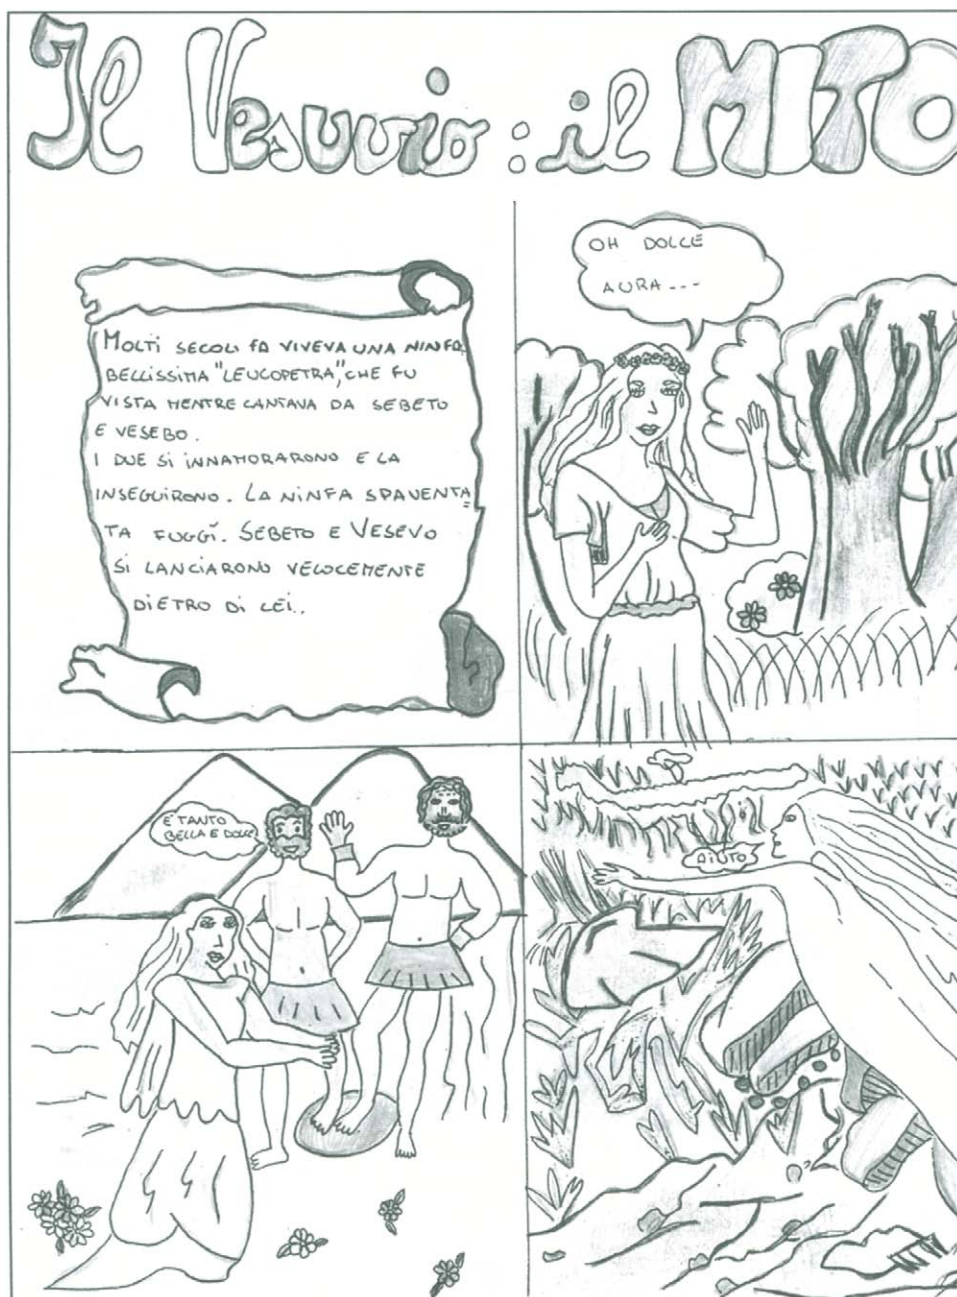 Il Vesuvio: il MITO
MOLTI SECOLI FA VIVEVA UNA NINFA
BELLISSIMA "LEUCOPETRA", CHE FU
VISTA MENTRE CANTAVA DA SEBETO
E VESEBO.
I DUE SI INNAMORARONO E LA
INSEGUIRONO. LA NINFA SPAVENTA=
TA FUGGÌ. SEBETO E VESEVO
SI LANCIARONO VELOCEMENTE
DIETRO DI LEI..
OH DOLCE
AURA---
E' TANTO
BELLA E DOLCE
AIUTO